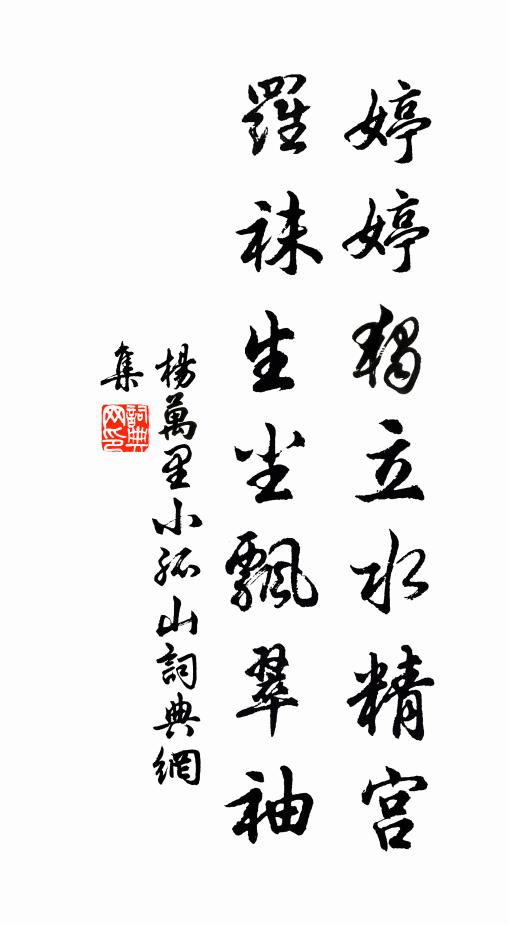 婷婷獨立水精宫
羅袜生尘飄翠袖
楊萬里小孤山詞典網
集
詞典
网印